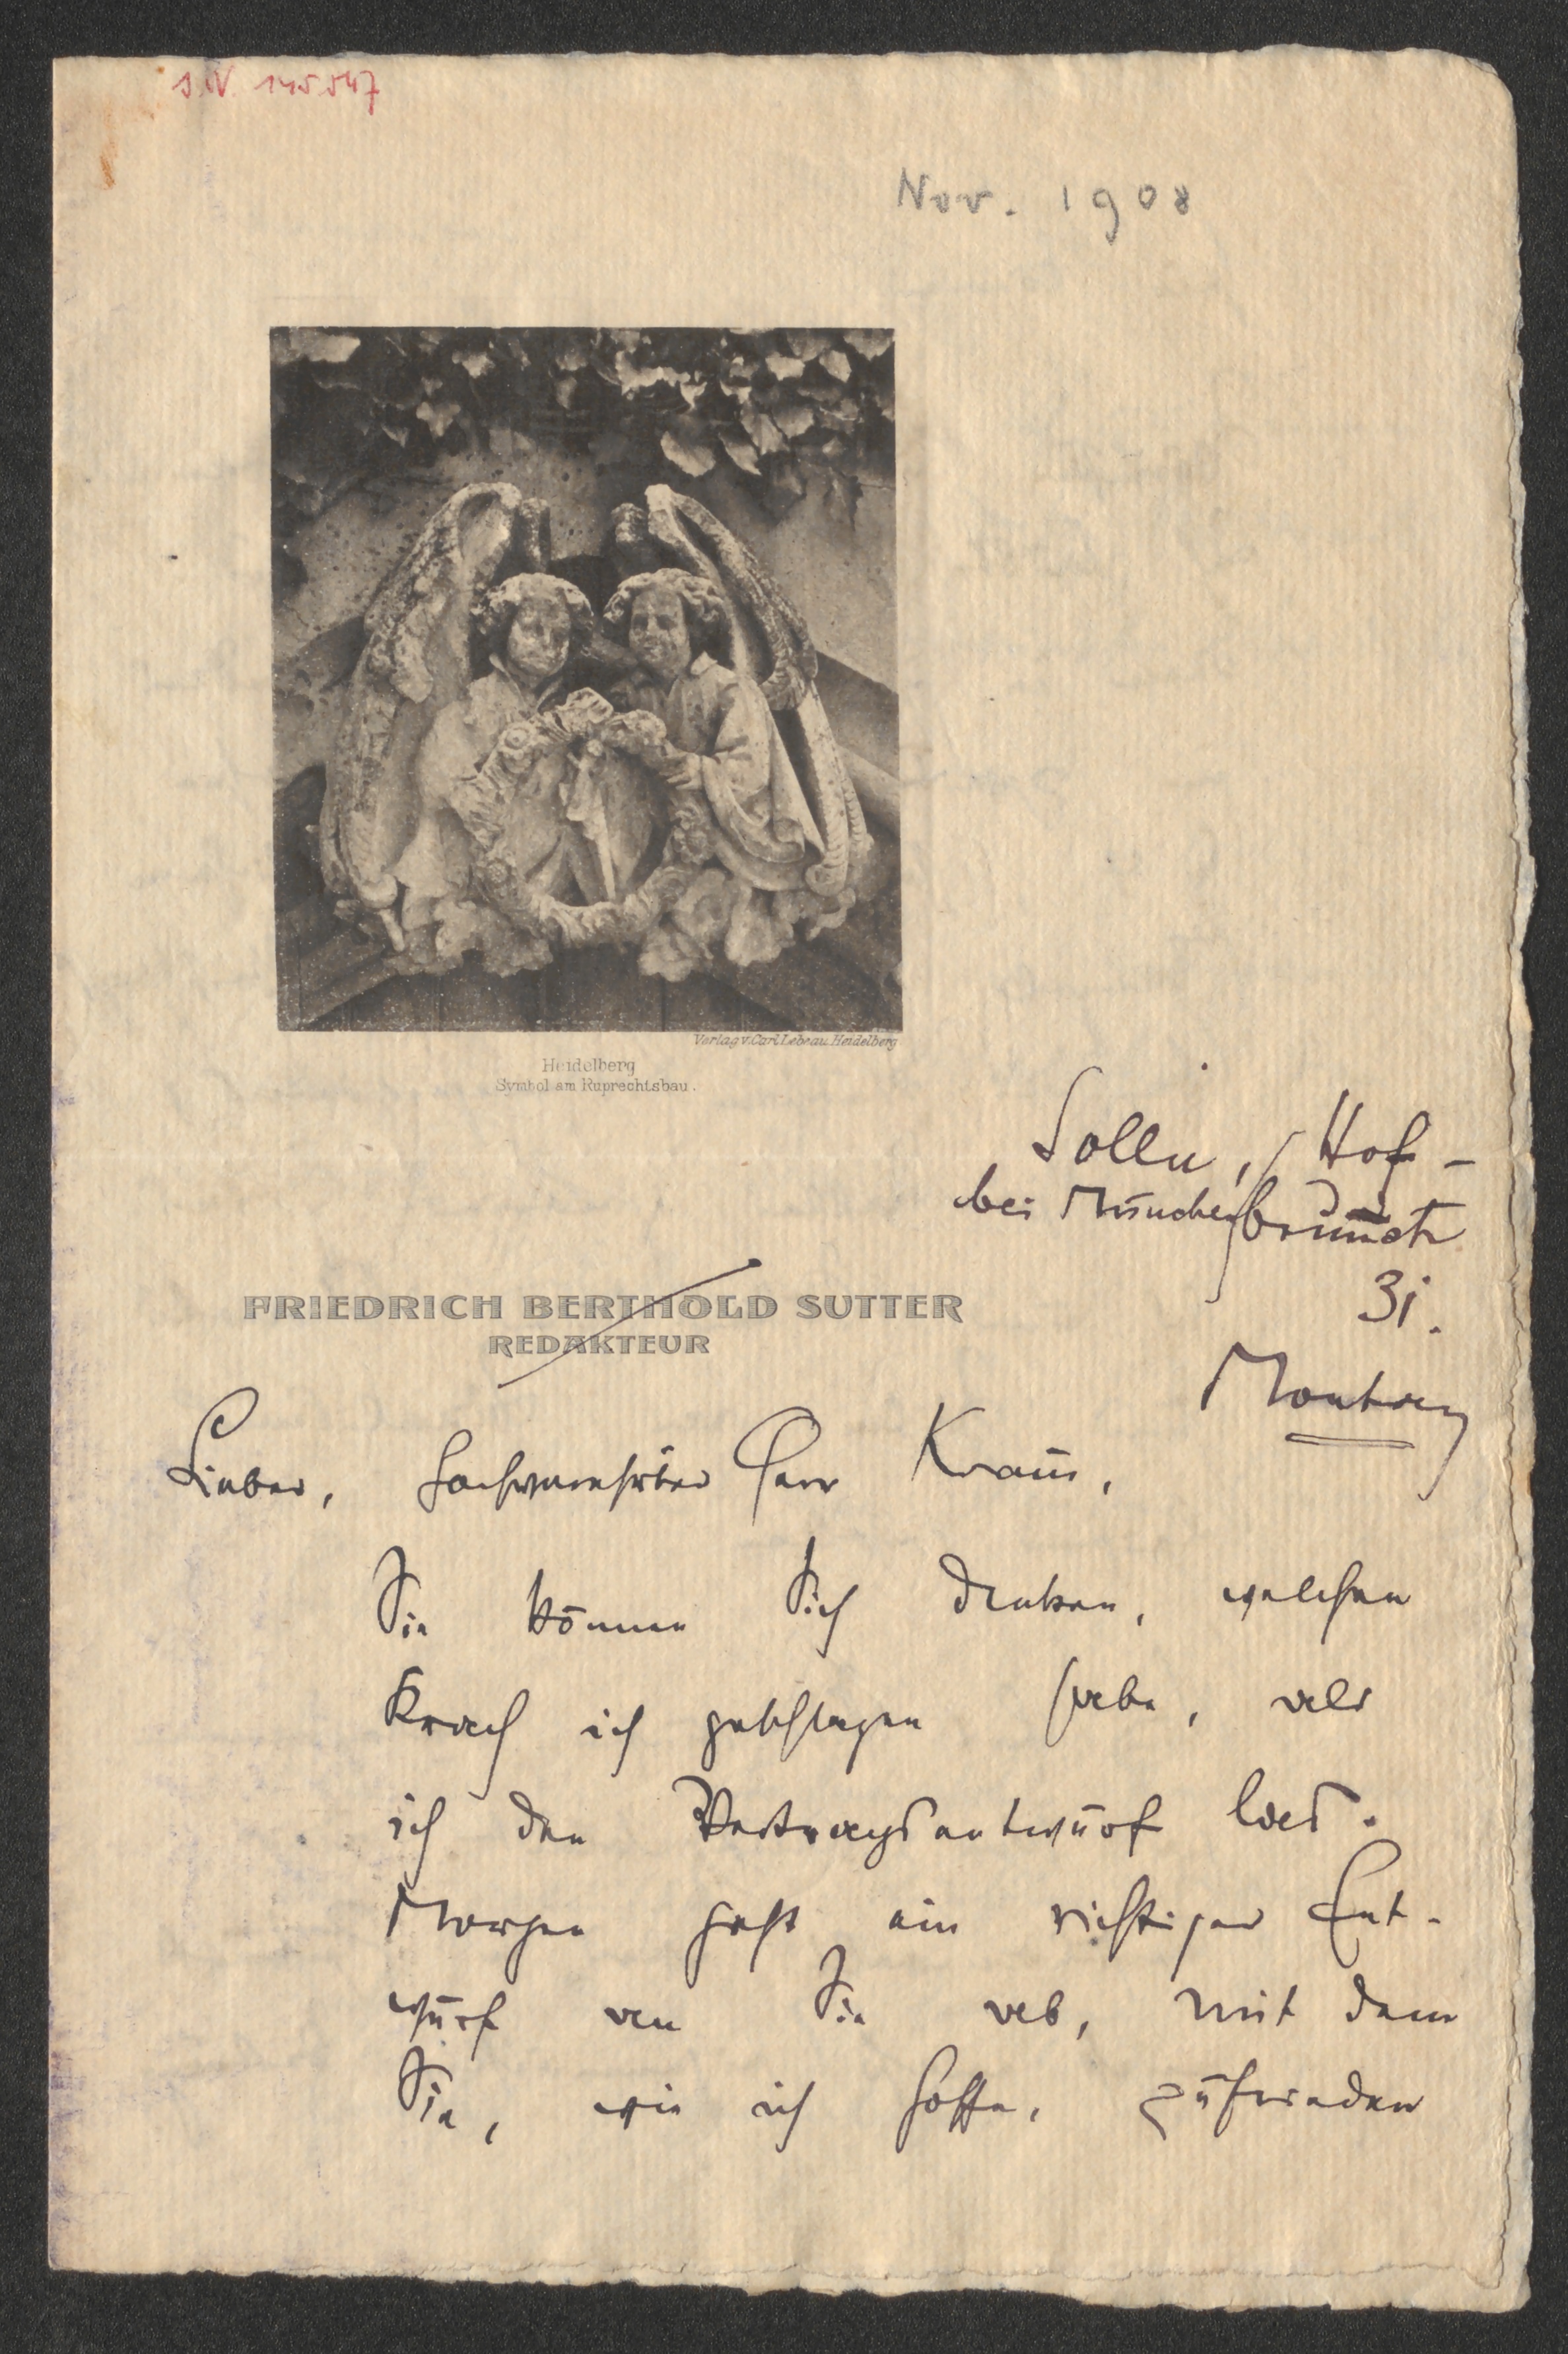 I.N. 145547
Nov. 1908
Verlag v. Carl Lebeau Heidelberg
Heidelberg
Symbol am Ruprechtsbau.
Solln, Hof-
bei München
31.
FRIEDRICH BERTHOLD SUTTER
REDAKTEUR
Montag
Lieber, hochverehrter Herr Kraus,
Sie können Sich denken, welchen
Krach ich geschlagen habe, als
ich den Vertragsentwurf las.
Morgen geht ein richtiger Ent-
wurf an Sie ab, mit dem
Sie, wie ich hoffe, zufrieden